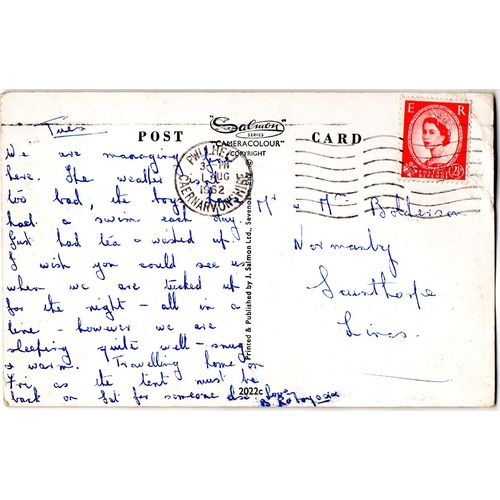 Tues
POST CARD
"Salmon"
SERIES
"CAMERACOLOUR"
COPYRIGHT
E R
POSTAGE
REVENUE
2½D
PWLLHELI
AUG
1962
CAERNARVONSHIRE
We are managing fine
here. The weather isn't
too bad, the boys have
had a swim each day.
Just had tea & washed up.
I wish you could see us
when we are tucked up
for the night - all in a
line - however we are
sleeping quite well - snug
& warm. Travelling home on
Fri as the tent must be
back on Sat for someone else. Love
B. Roy
Mr & Mrs Bolderson
Normanby
Scunthorpe
Lincs.
Printed & Published by J. Salmon Ltd., Sevenoaks
2022c